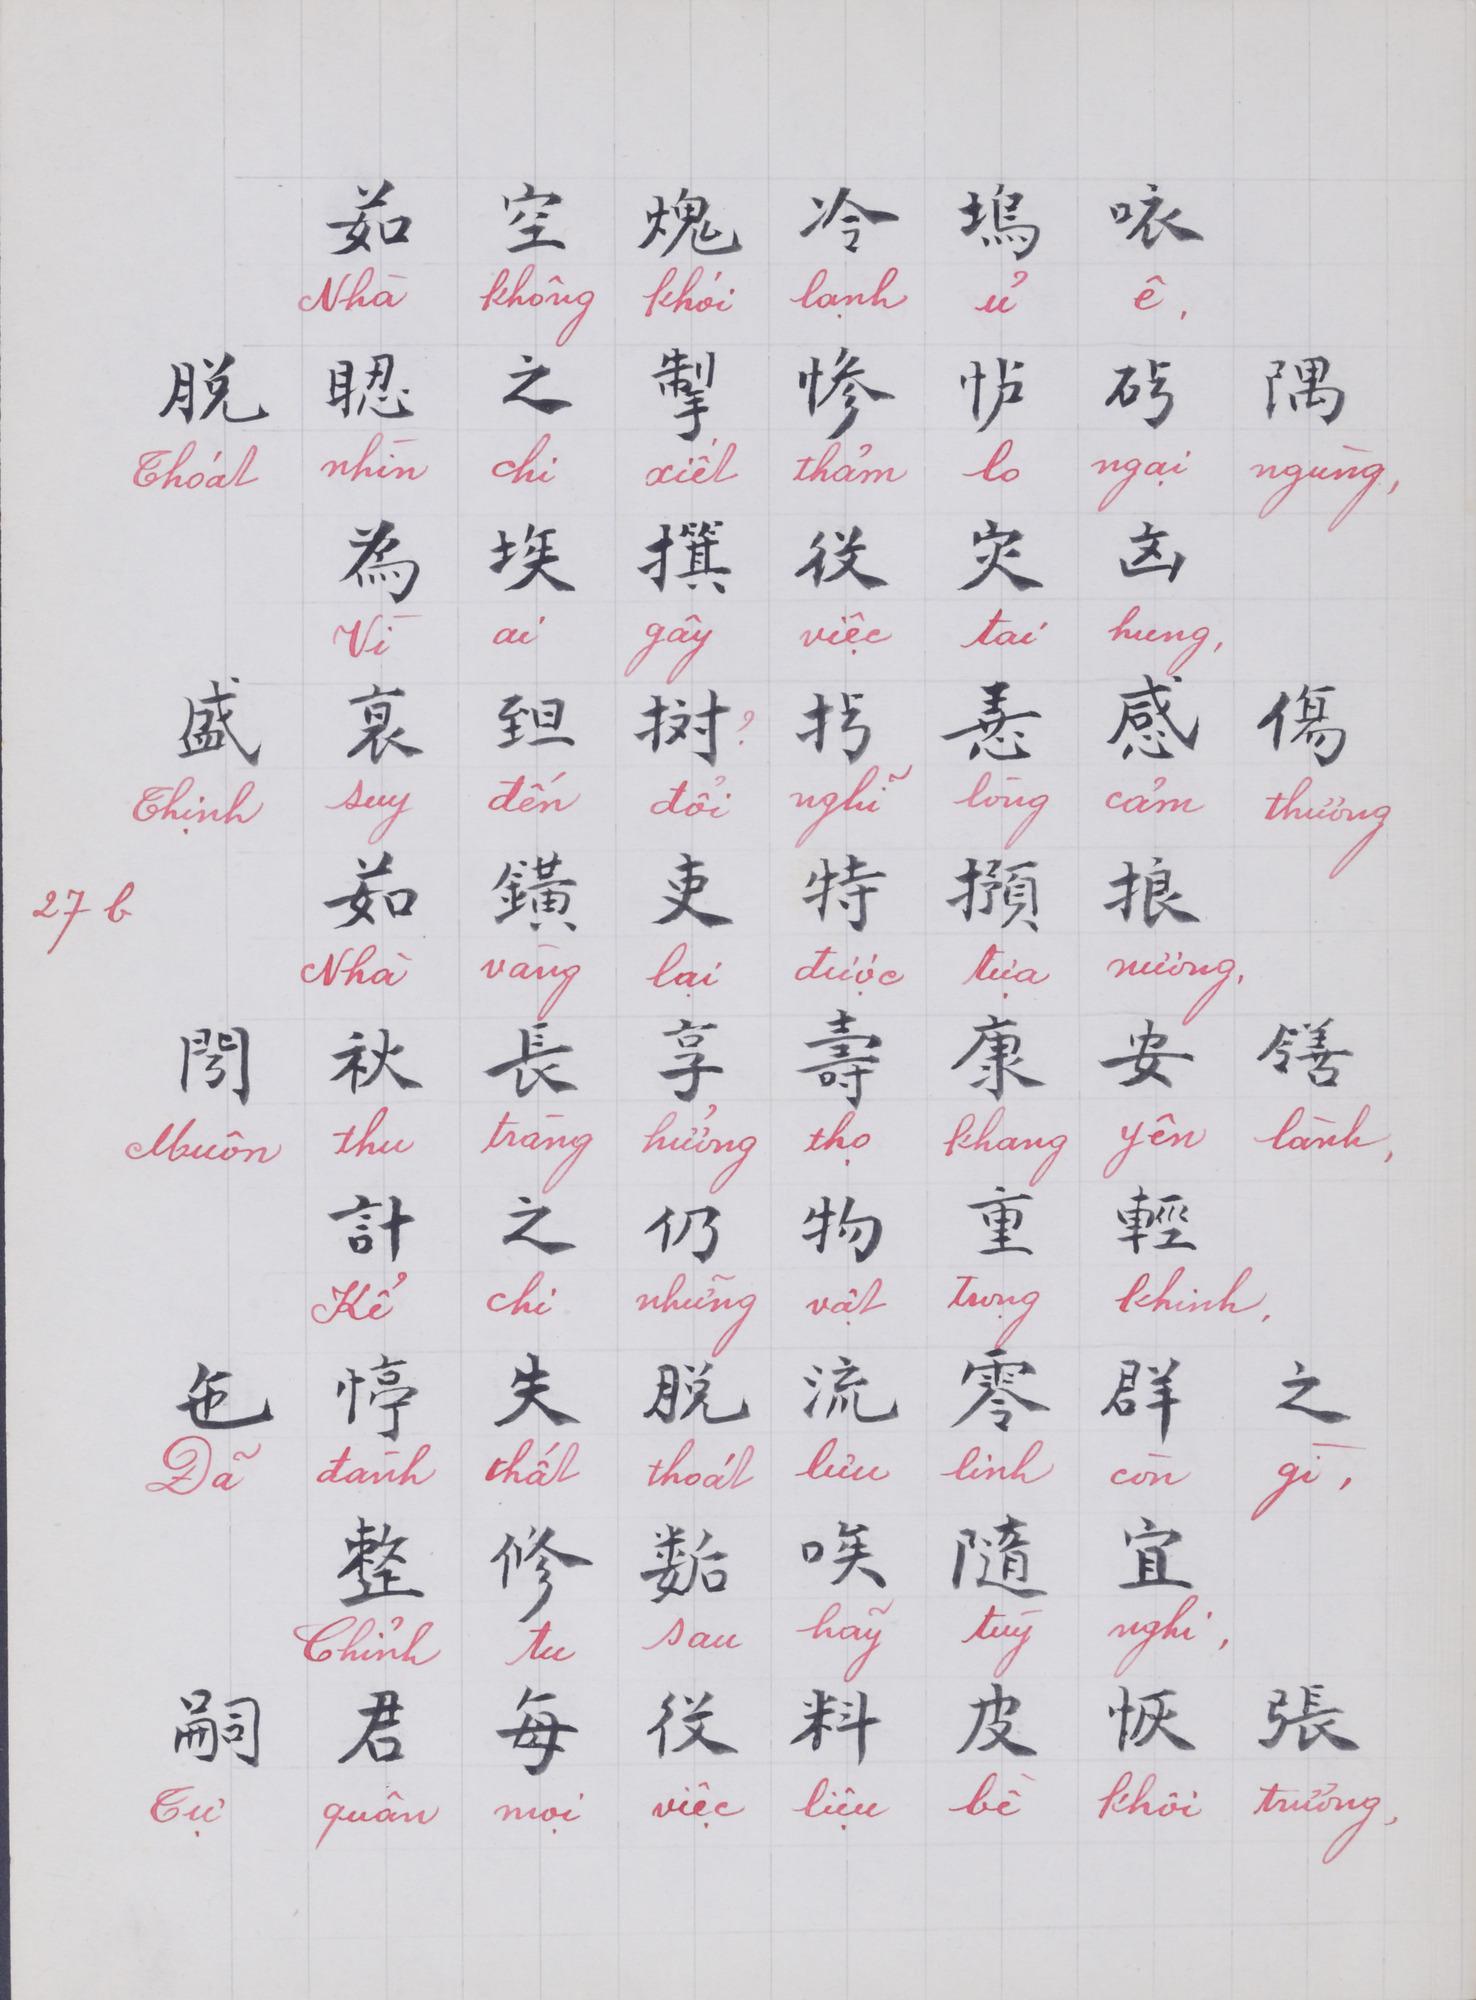 茹 空 塊 冷 塢 𠲖
Nhà không khói lạnh ủ ê,
脱 䀡 之 掣 惨 怗 砖 隅
Thoát nhìn chi xiết thảm lo ngại ngùng,
為 埃 撰 役 灾 凶
Vì ai gây việc tai hung,
盛 衰 𦤾 𢬭 ? 𢪀 𢙱 感 傷
Thịnh suy đến đổi nghĩ lòng cảm thương
茹 鐄 吏 特 㨋 挔
Nhà vàng lại được tựa nương,
27 b
閍 秋 長 享 壽 康 安 𫅜
Muôn thu tràng hưởng thọ khang yên lành,
計 之 仍 物 重 輕
Kể chi những vật trọng khinh,
㐌 停 失 脱 流 零 群 之
Đã đành thất thoát lưu linh còn gì,
整 修 𢖖 唉 隨 宜
Chỉnh tu sau hãy tuỳ nghi,
嗣 君 每 役 料 皮 恢 張
Tự quân mọi việc liệu bề khôi trương,